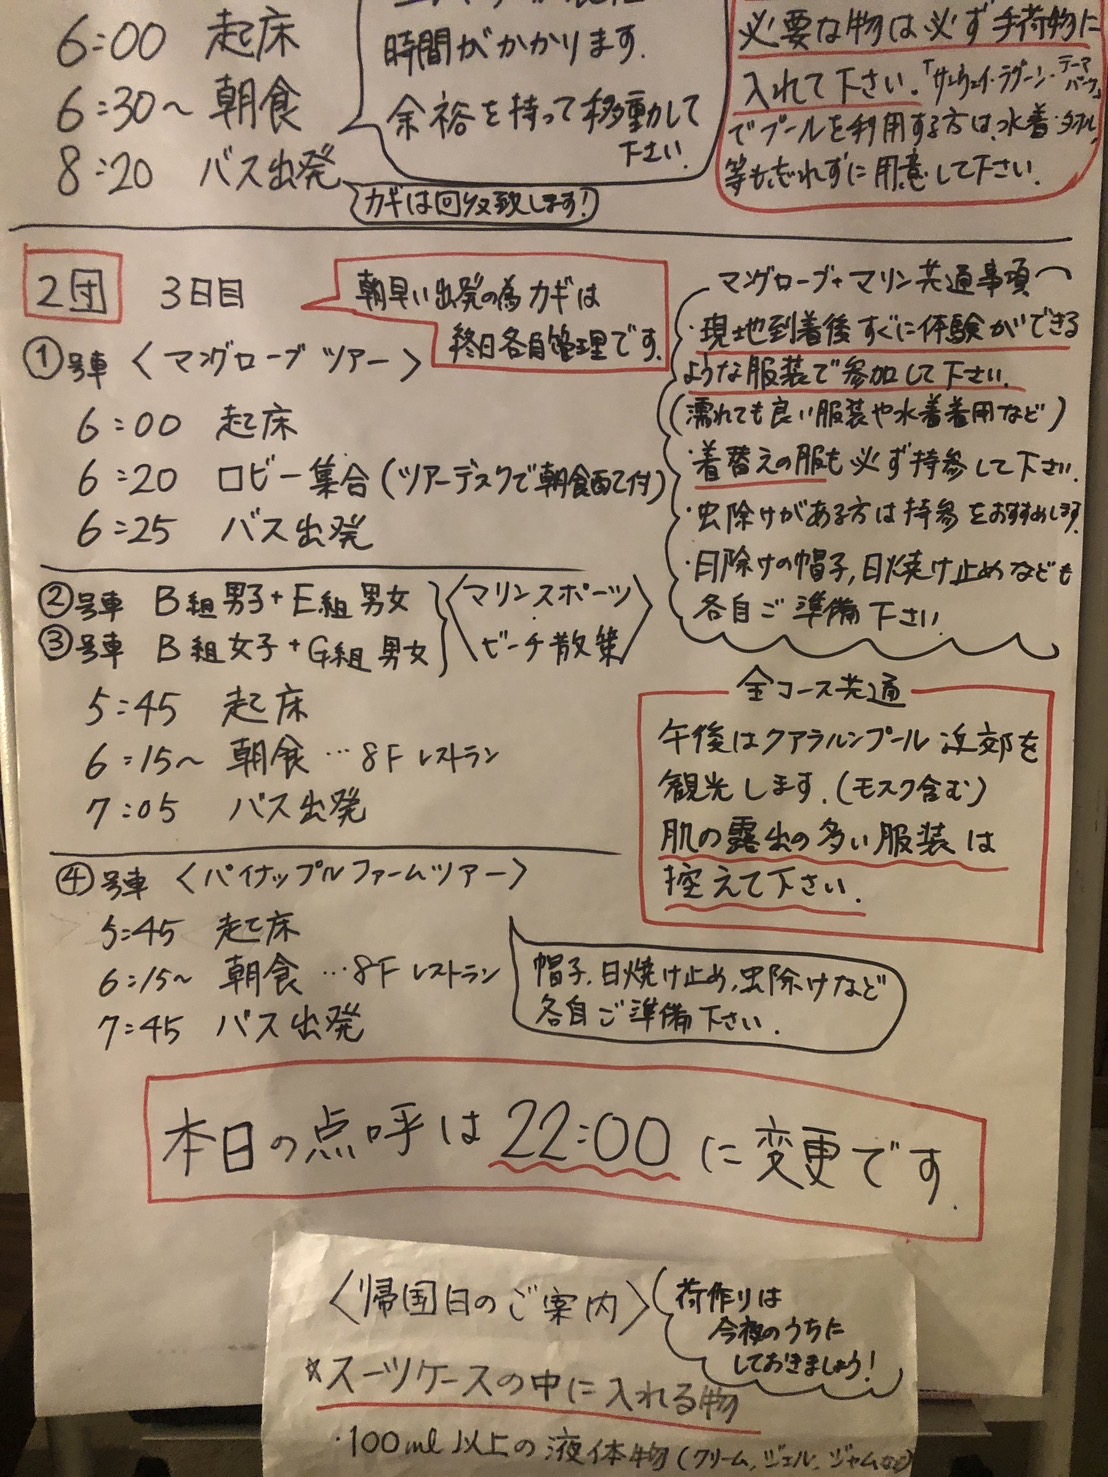 6:00 起床
6:30〜 朝食
8:20 バス出発
時間がかかります.
余裕を持って移動して
下さい.
カギは回収致します!
必要な物は必ず手荷物に
入れて下さい.「サンウェイ・ラグーン・テーマパーク」
でプールを利用する方は、水着・タオル
等も忘れずに用意して下さい.
2団 3日目
朝早い出発の為カギは
終日各自管理です.
①号車 〈マングローブツアー〉
6:00 起床
6:20 ロビー集合(ツアーデスクで朝食配付)
6:25 バス出発
②号車 B組男子+E組男女
③号車 B組女子+G組男女
〈マリンスポーツ
ビーチ散策〉
5:45 起床
6:15〜 朝食…8Fレストラン
7:05 バス出発
④号車 〈パイナップルファームツアー〉
5:45 起床
6:15〜 朝食…8Fレストラン
7:45 バス出発
帽子,日焼け止め,虫除けなど
各自ご準備下さい.
マングローブ+マリン共通事項
・現地到着後すぐに体験ができる
ような服装で参加して下さい.
(濡れても良い服装や水着着用など)
・着替えの服も必ず持参して下さい.
・虫除けがある方は持参をおすすめします.
・日除けの帽子,日焼け止めなども
各自ご準備下さい.
全コース共通
午後はクアラルンプール近郊を
観光します.(モスク含む)
肌の露出の多い服装は
控えて下さい.
本日の点呼は22:00に変更です.
〈帰国日のご案内〉
荷作りは
今夜のうちに
しておきましょう!
☆スーツケースの中に入れる物
・100ml以上の液体物(クリーム,ジェル,ジャムなど)